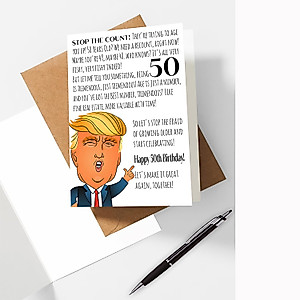 STOP THE COUNT: THEY'RE TRYING TO AGE
YOU UP! 50 YEARS OLD? WE NEED A RECOUNT, RIGHT NOW!
MAYBE YOU'RE 49, MAYBE 42, WHO KNOWS? IT'S ALL VERY
FISHY, VERY FISHY INDEED!
BUT LET ME TELL YOU SOMETHING, BEING 50
IS TREMENDOUS, JUST TREMENDOUS. AGE IS JUST A NUMBER,
AND YOU'VE GOT THE BEST NUMBER, TREMENDOUS! LIKE
FINE REAL ESTATE, MORE VALUABLE WITH TIME!
SO LET'S STOP THE FRAUD
OF GROWING OLDER AND
START CELEBRATING!
Happy 50th Birthday!
LET'S MAKE IT GREAT
AGAIN, TOGETHER!